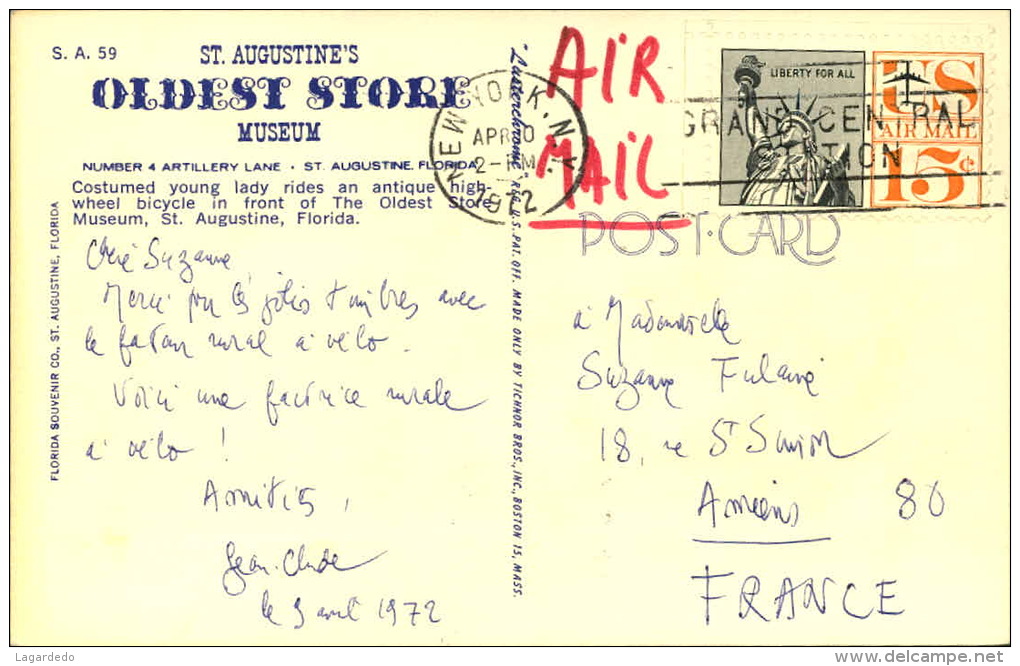 S. A. 59
ST. AUGUSTINE'S
OLDEST STORE
MUSEUM
NUMBER 4 ARTILLERY LANE · ST. AUGUSTINE, FLORIDA
Costumed young lady rides an antique high-
wheel bicycle in front of The Oldest Store
Museum, St. Augustine, Florida.
Chère Suzanne
Merci pour les jolis timbres avec
le facteur rural à vélo.
Voici une factrice rurale
à vélo !
Amitiés,
Jean-Claude
le 9 avril 1972
FLORIDA SOUVENIR CO., ST. AUGUSTINE, FLORIDA
"Lusterchrome" REG. U.S. PAT. OFF. MADE ONLY BY TICHNOR BROS., INC., BOSTON 15, MASS.
AIR
MAIL
NEW YORK, N.Y.
APR 10
2-PM
1972
GRAND CENTRAL
STATION
LIBERTY FOR ALL
US
AIR MAIL
15¢
POST·CARD
à Mademoiselle
Suzanne
18, rue St Simon
Amiens 80
FRANCE
Lagardedo
http://www.delcampe.net